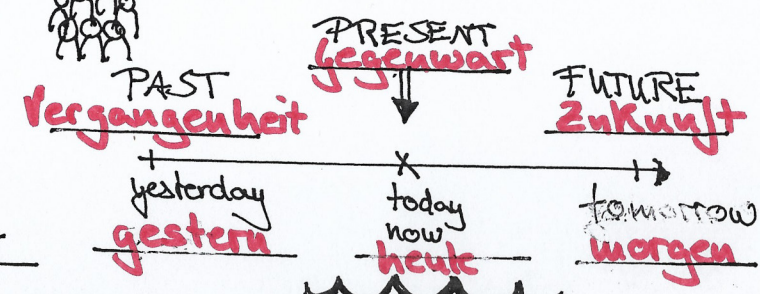 PRESENT
Gegenwart
PAST
Vergangenheit
FUTURE
Zukunft
yesterday
gestern
today
now
heute
tomorrow
morgen